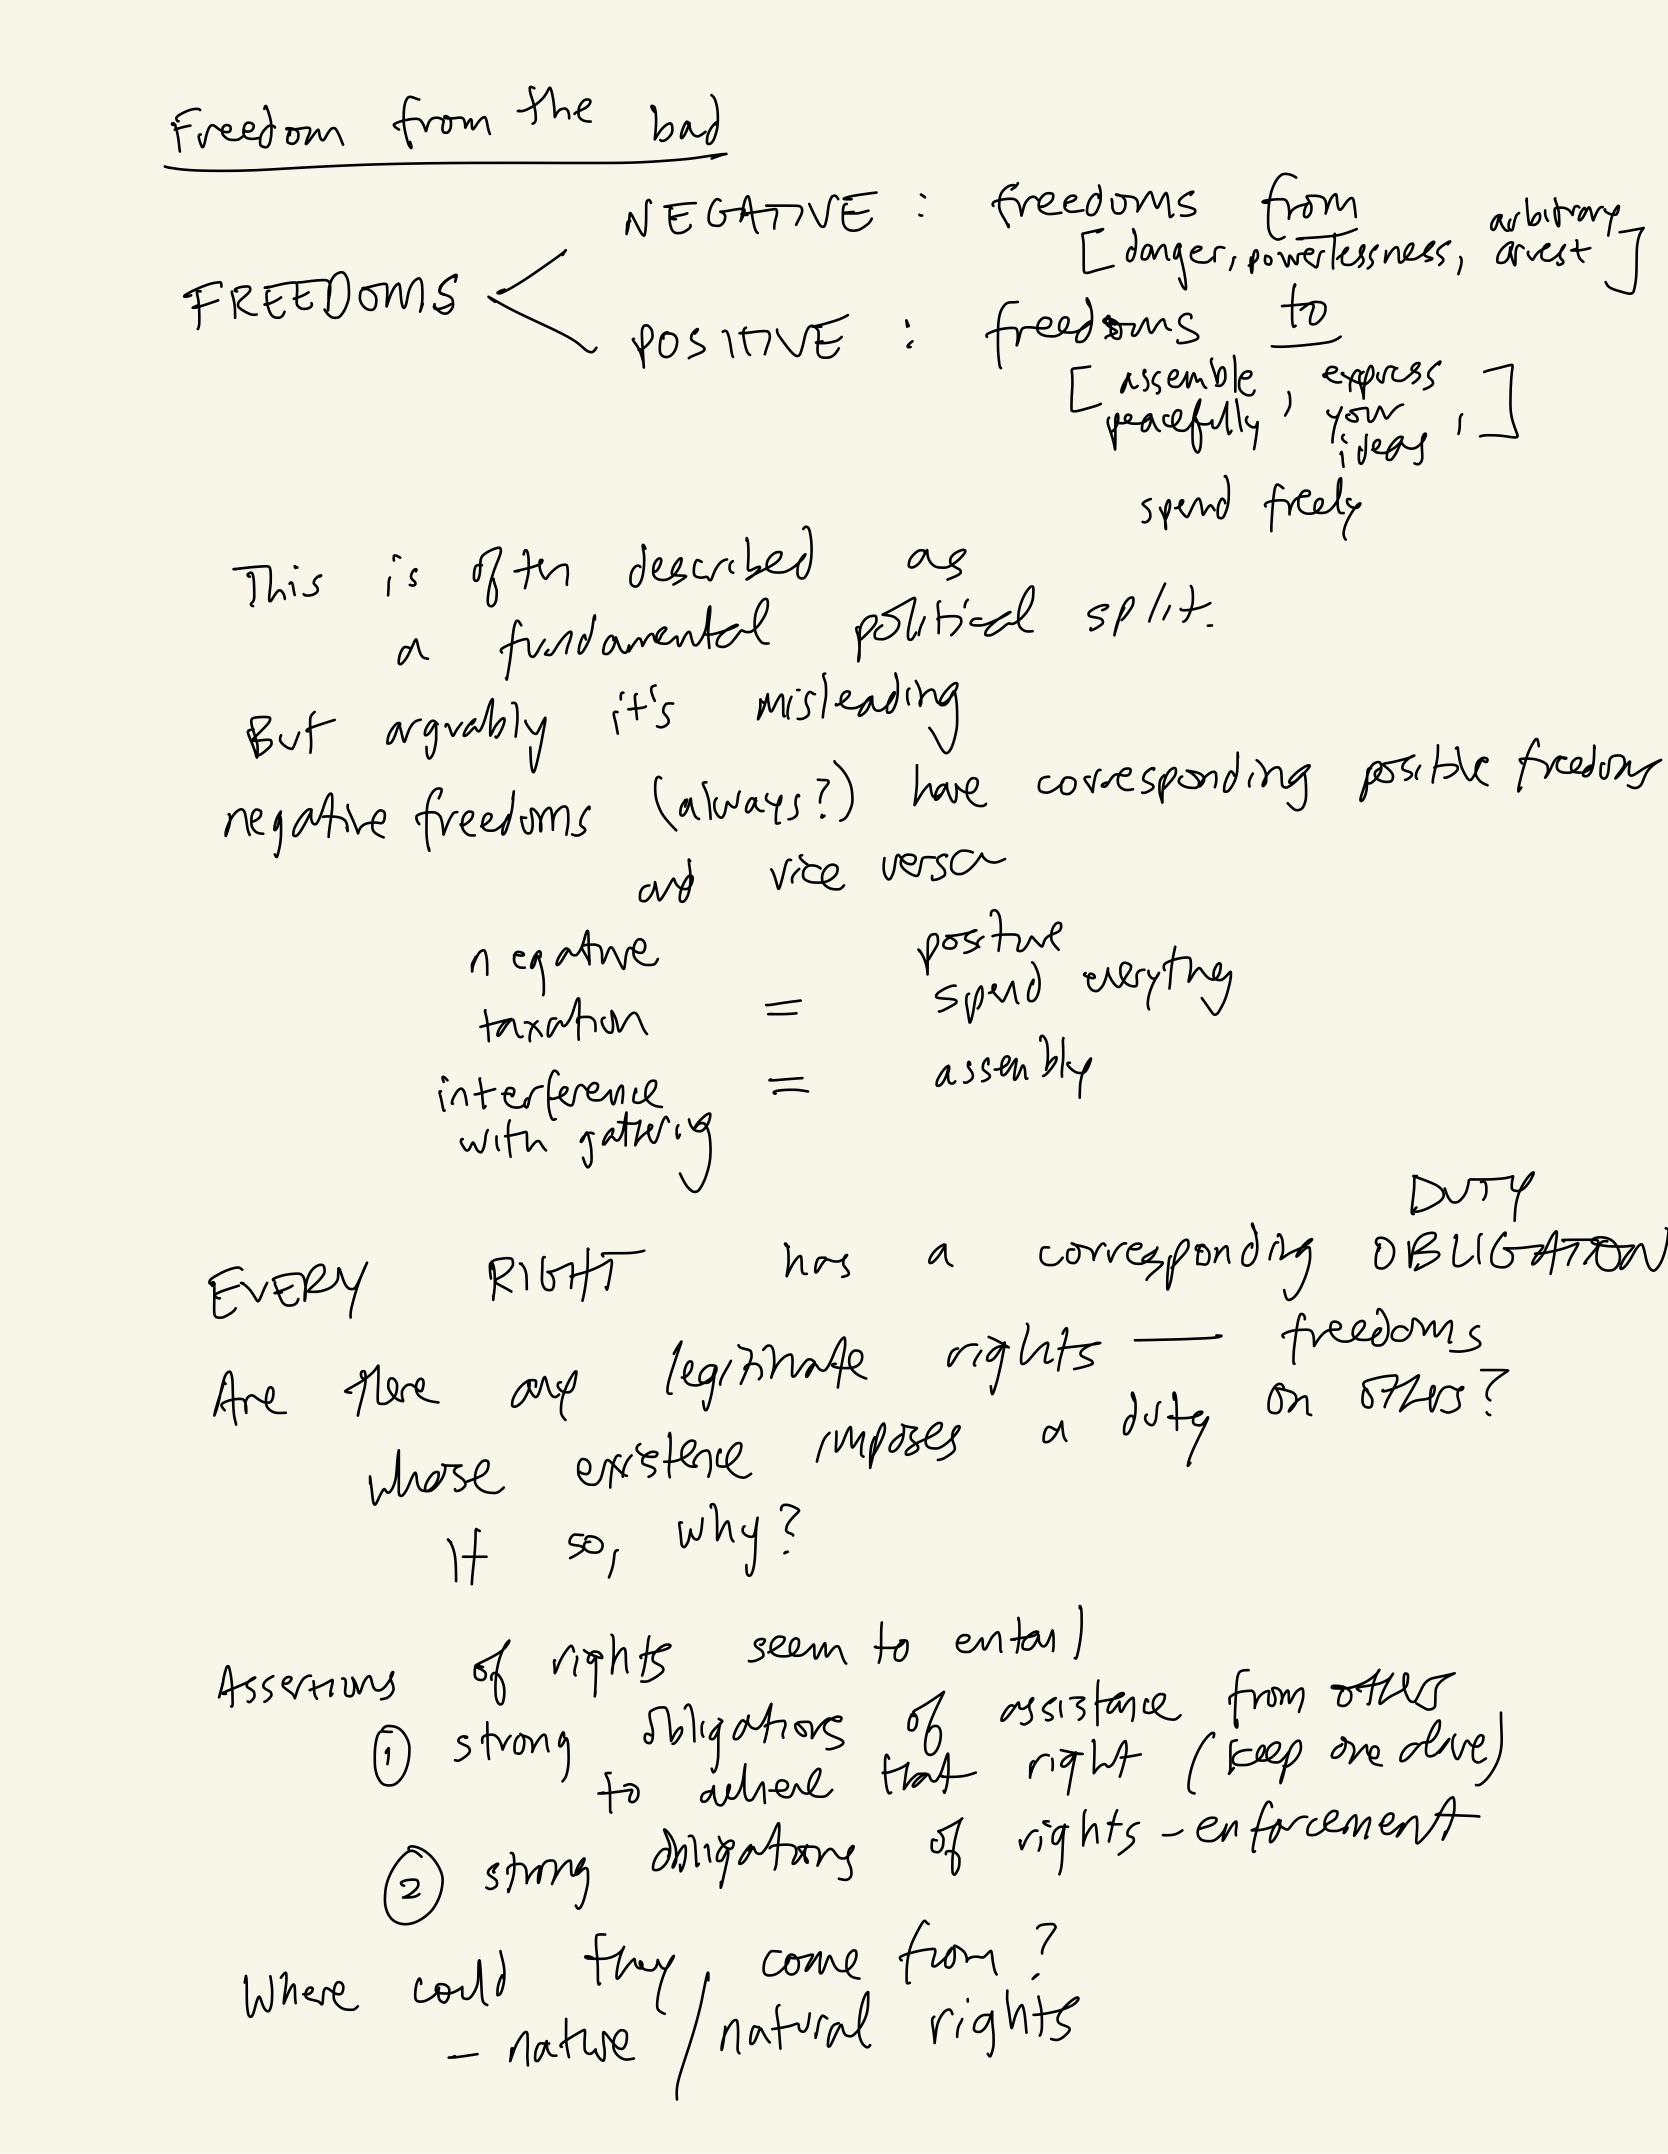 Freedom from the bad
NEGATIVE : freedoms from
[danger, powerlessness, arbitrary arrest]
FREEDOMS <
POSITIVE : freedoms to
[assemble peacefully, express your ideas, ]
spend freely
This is often described as
a fundamental political split.
But arguably it's misleading
negative freedoms (always?) have corresponding positive freedoms
and vice versa
negative positive
taxation = spend everything
interference = assembly
with gathering
DUTY
EVERY RIGHT has a corresponding OBLIGATION
Are there any legitimate rights — freedoms
whose existence imposes a duty on others?
If so, why?
Assertions of rights seem to entail
① strong obligations of assistance from others
to achieve that right (keep one alive)
② strong obligations of rights-enforcement
Where could they come from?
- nature / natural rights